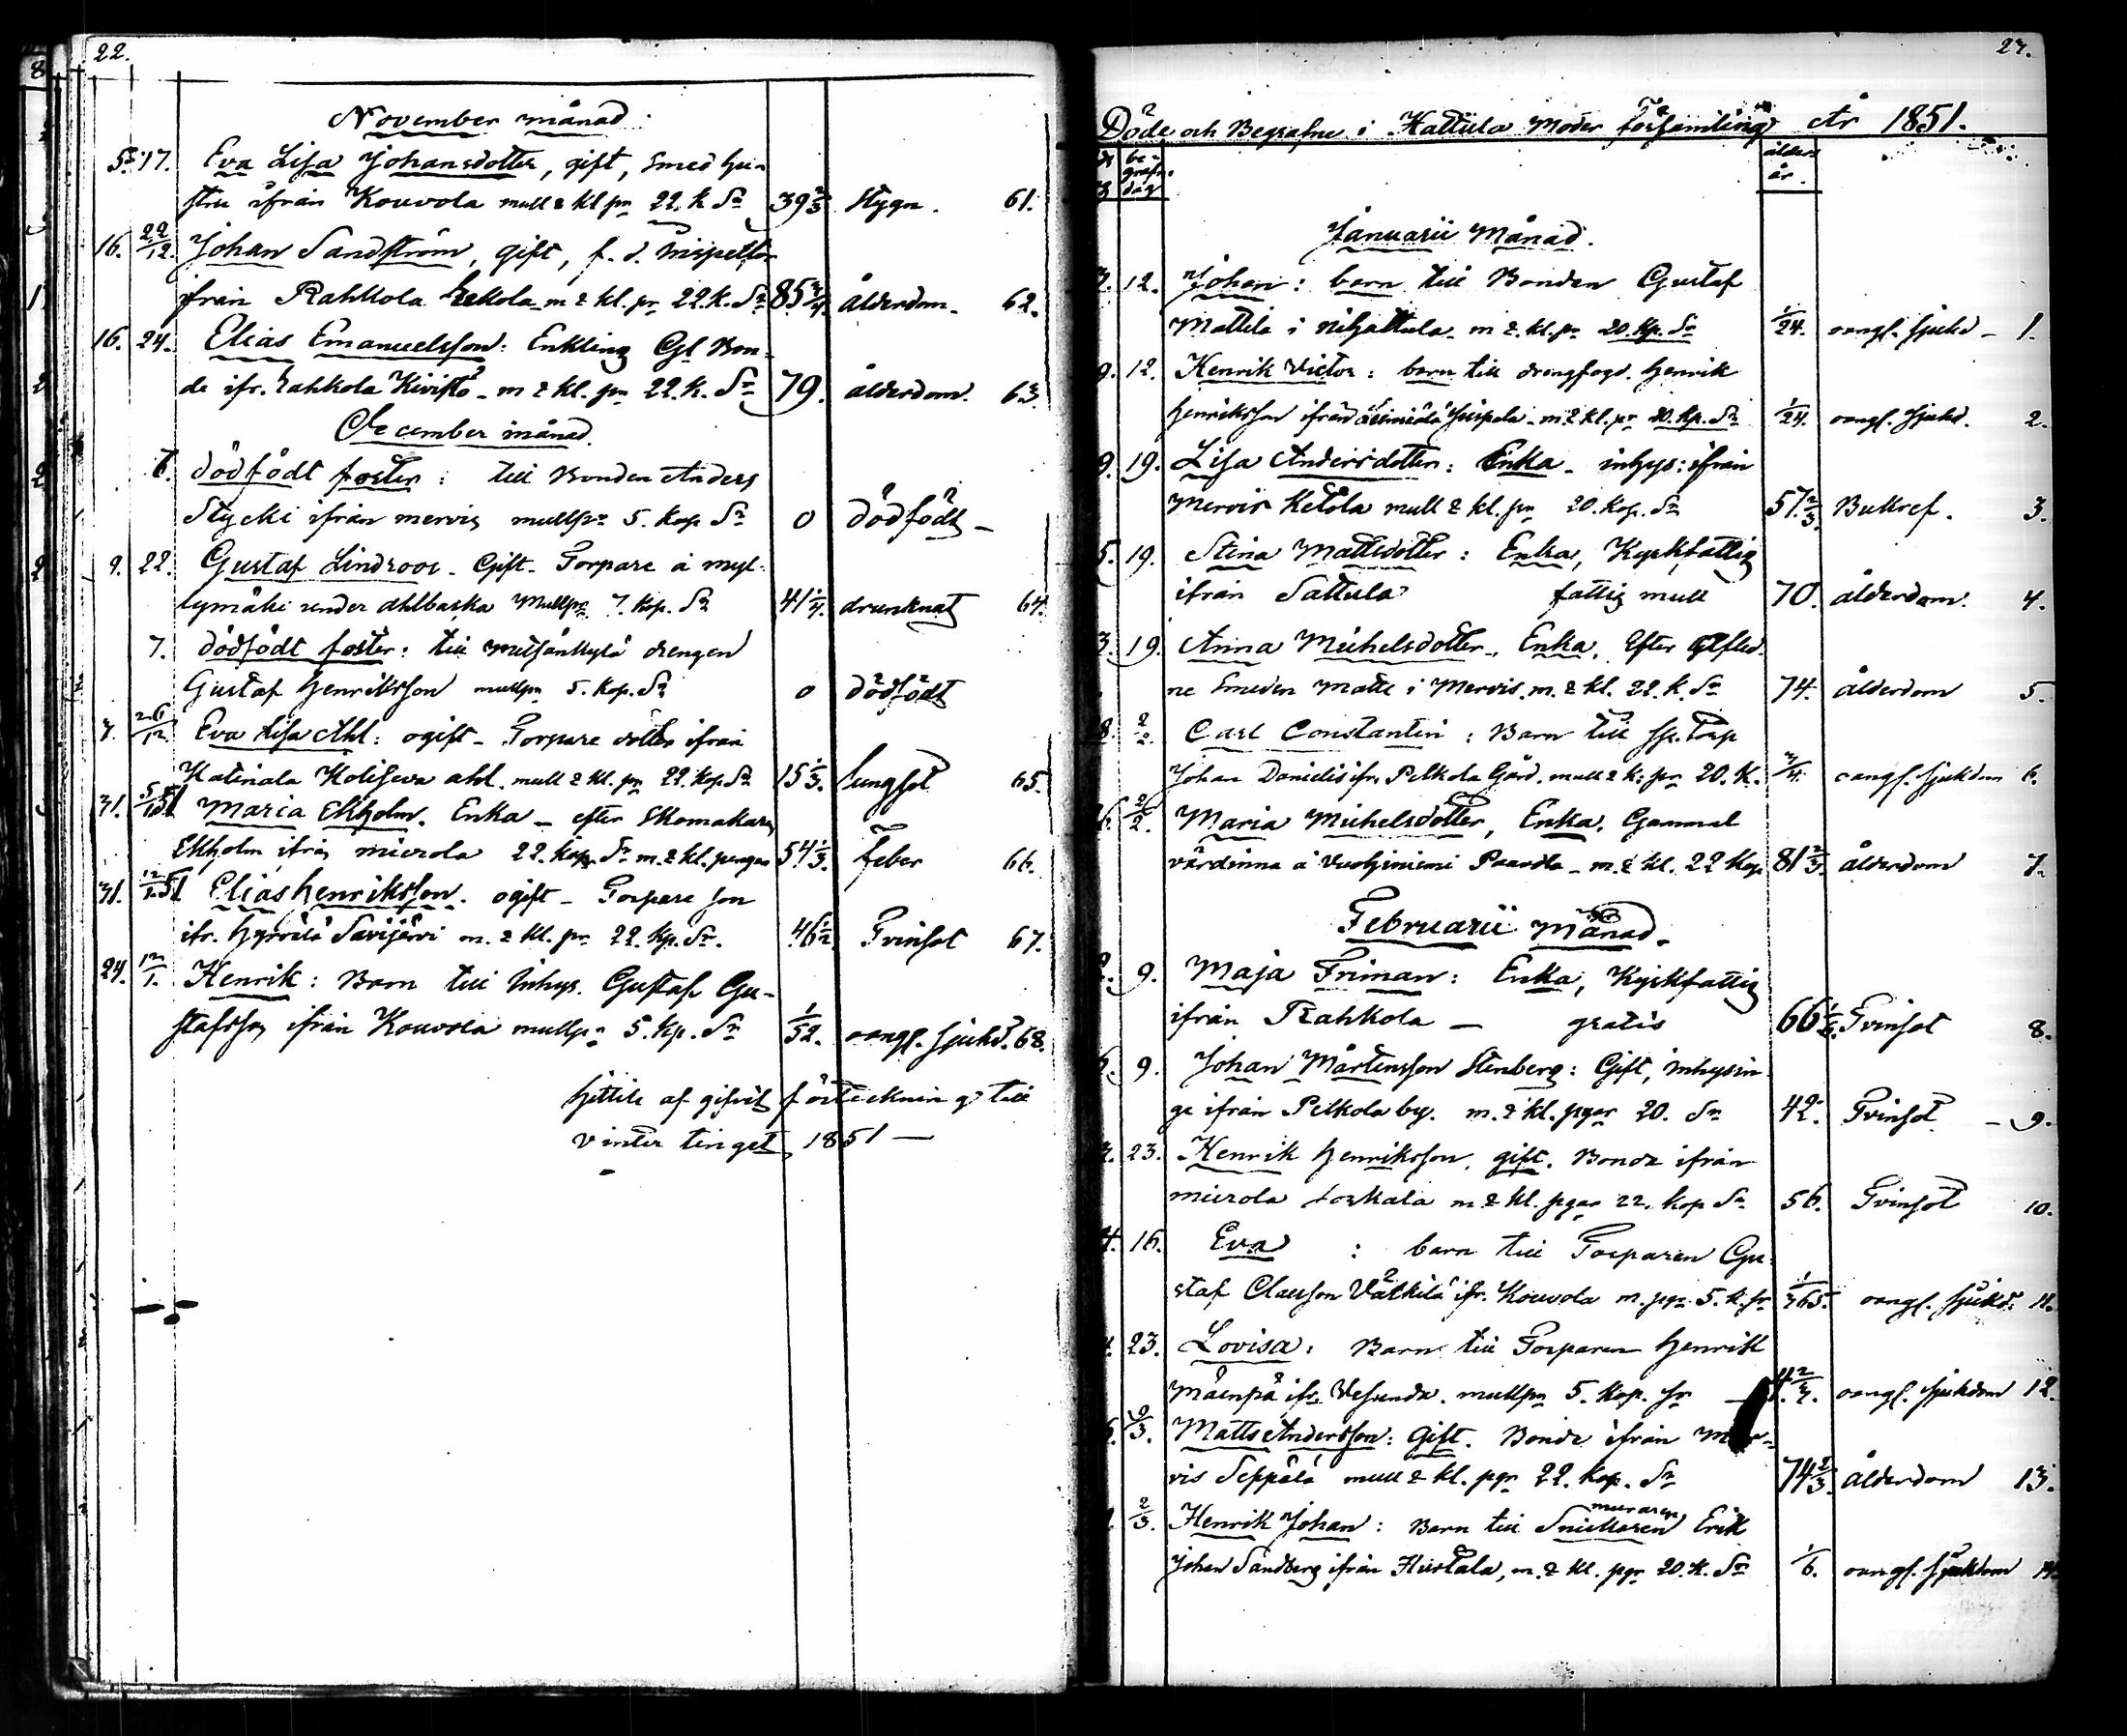 22.
November månad.
5. 17. Eva Lisa Johansdotter, gift, Smed hu-
stru ifrån Kouvola mull & kl pr 22. k Sr 39 2/3 Stygn. 61.
16. 22/12. Johan Sandström, gift, f. d. Inspektor
ifrån Rahkola m & kl. pr 22. K. Sr 85 3/4. ålderdom. 62.
16. 24. Elias Emanuelsson: Enkling Gl Bon-
de ifr. Rahkola Kivistö m & kl. pr 22. k. Sr 79. ålderdom. 63.
December månad.
6. dödfödt foster: till Bonden Anders
Stycki ifrån mervis mullpr 5. Kop Sr 0 dödfödt —
9. 22. Gustaf Lindroos. Gift. Torpare å myl-
lymäki under Ahlbacka Mullpr 7. Kop. Sr 41 1/4. drunknat 64.
7. dödfödt foster: till drengen
Gustaf Henriksson mullpr 5. Kop. Sr 0 dödfödt
7. 26/12. Eva Lisa Ahl: ogift – Torpare dotter ifrån
Katinala ahl. mull & kl. pr 22. Kop. Sr 15 1/3. lungsot 65.
31. 5/1 51 Maria Ekholm. Enka – efter Skomakaren
Ekholm ifrån mierola 22. kop Sr m. & kl. pengar 54 1/3. Feber 66.
31. 12/1 51 Elias Henriksson. ogift – Torpare son
ifr. Hyrvälä Savijärvi m. & kl. pr 22. Kp. Sr. 46 1/2 Tvinsot 67.
24. 12/1. Henrik: Barn till Inhys. Gustaf Gu-
stafsson ifrån Kouvola mullpr 5. kp. Sr 1/52. oangf. sjukd. 68.
hittils af gifvit förteckning till
vinter tinget 1851 —
27.
Döde och Begrafne i Hattula Moder Församling År 1851.
be-
grafn.
dag
ålders
år.
Januarii Månad.
12. Johan: barn till Bonden Gustaf
Mattila i Nihattula m & kl. pr 20. Kp. Sr 1/24. oangf. sjukd – 1.
9. 12. Henrik Victor: barn till drengfogd. Henrik
Henriksson ifrån m. & kl. pr 20. Kp. Sr 1/24. oangf. sjukd. 2.
9. 19. Lisa Andersdotter: Enka – inhys: ifrån
Mervis Ketola mull & kl. pr 20. Kop. Sr 57 2/3. Bukref. 3.
5. 19. Stina Mattsdotter: Enka, Kyrkfattig
ifrån Sattula fattig mull 70. ålderdom. 4.
3. 19. Anna Michelsdotter, Enka. Efter aflid-
ne Smeden Matts i Mervis. m. & kl. 22. k. Sr 74. ålderdom 5.
8. 2/2. Carl Constantin: Barn till Torp
Johan Danielis ifr. Pelkola Gård. mull & k: pr 20. K. 3/4. oangf. sjukdom 6.
6. 2/2. Maria Michelsdotter, Enka. Gammal
värdinna å Vuohiniemi Paavola m. & kl. 22 Kop 81 2/3. ålderdom 7.
Februarii Månad.
9. Maja Friman: Enka, Kyrkfattig
ifrån Rahkola — gratis 66 Tvinsot 8.
9. Johan Mårtensson Stenberg: Gift, inhysin-
ge ifrån Pelkola by. m. & kl. pgar 20. Sr 42. Tvinsot – 9.
23. Henrik Henriksson, gift. Bonde ifrån
mierola m & kl. pgar 22. kop Sr 56. Tvinsot 10.
4. 16. Eva: barn till Torparen Gu-
staf Clausson Välkilä ifr. Kouvola m. pgr. 5. k. sr 1/365. oangf. sjukd. 11.
23. Lovisa: Barn till Torparen Henrik
Mäenpä ifr. Vesunda. mullpr 5. Kop. sr oangf. sjukdom 12.
9/3. Matts Andersson: Gift. Bonde ifrån Mer-
vis Seppälä mull & kl. pgr 22. Kop. Sr 74 2/3. ålderdom 13.
2/3. Henrik Johan: Barn till Snickaren muraren Erik
Johan Sandberg ifrån Hurtala, m. & kl. pgr 20. K. Sr 1/6. oangf. sjukdom 14.